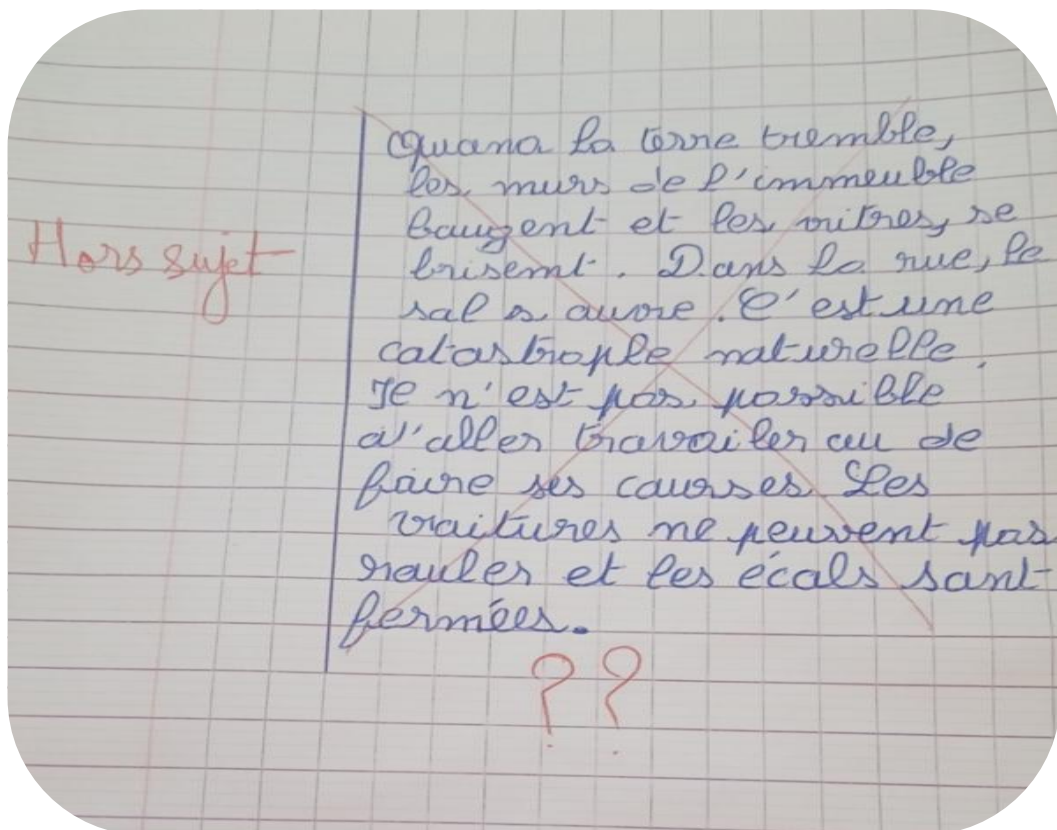 Quand la terre tremble,
les murs de l'immeuble
bougent et les vitres, se
brisent. Dans la rue, le
sol s ouvre. C'est une
Hors sujet
catastrophe naturelle.
Il n'est pas possible
d'aller travailer ou de
faire ses courses. Les
voitures ne peuvent pas
rouler et les écols sont
fermées.
??